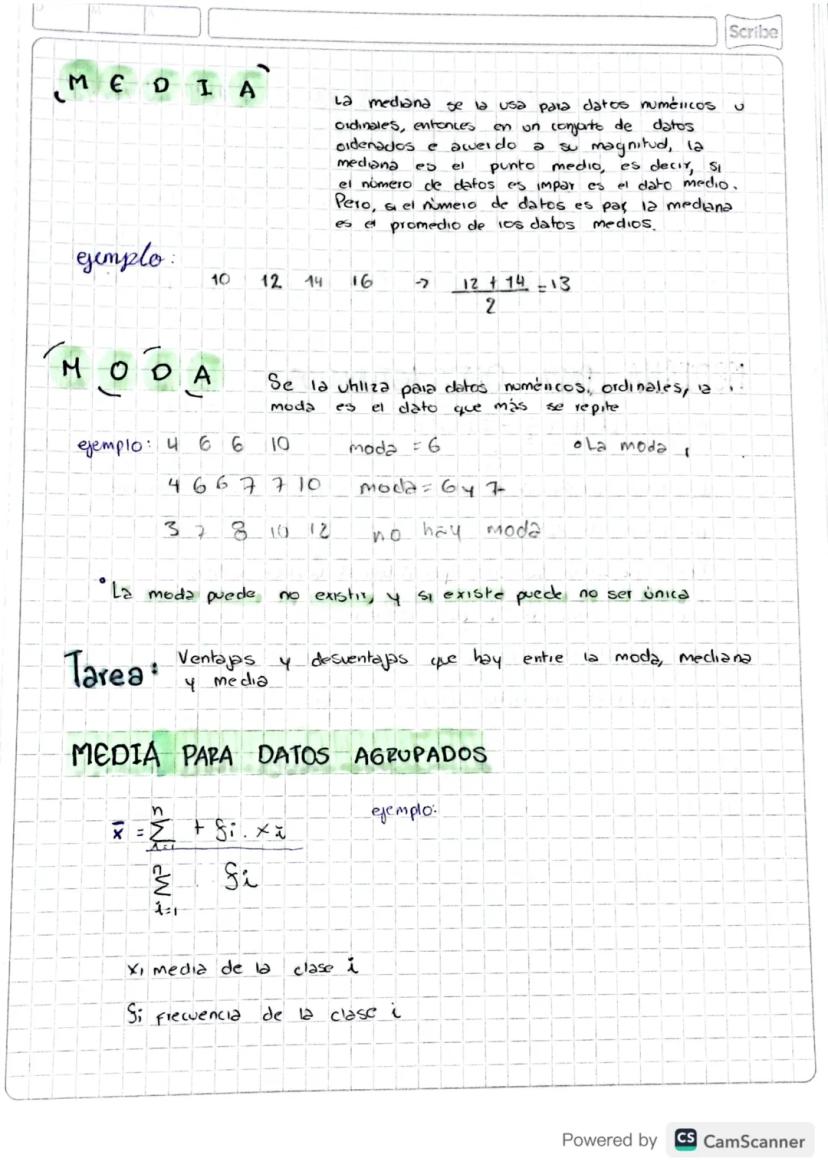 Scribe
MEDIA
La mediana se la usa para datos numéricos u
ordinales, entonces en un conjunto de datos
ordenados e acuerdo a su magnitud, la
mediana es el punto medio, es decir, si
el número de datos es impar es el dato medio.
Pero, si el número de datos es par la mediana
es el promedio de los datos medios.
ejemplo:
10 12 14 16 → 12 + 14 = 13
2
MODA
Se la utiliza para datos numéricos, ordinales, la
moda es el dato que más se repite
ejemplo: 4 6 6 10 moda = 6 • La moda
4 6 6 7 7 10 moda = 6 y 7
3 7 8 10 12 no hay moda
• La moda puede no existir, y si existe puede no ser única
Tarea: Ventajas y desventajas que hay entre la moda, mediana
y media
MEDIA PARA DATOS AGRUPADOS
ejemplo:
n
x̄ = Σ + fi . xi
i=1
n
Σ fi
i=1
xi media de la clase i
fi frecuencia de la clase i
Powered by CS CamScanner